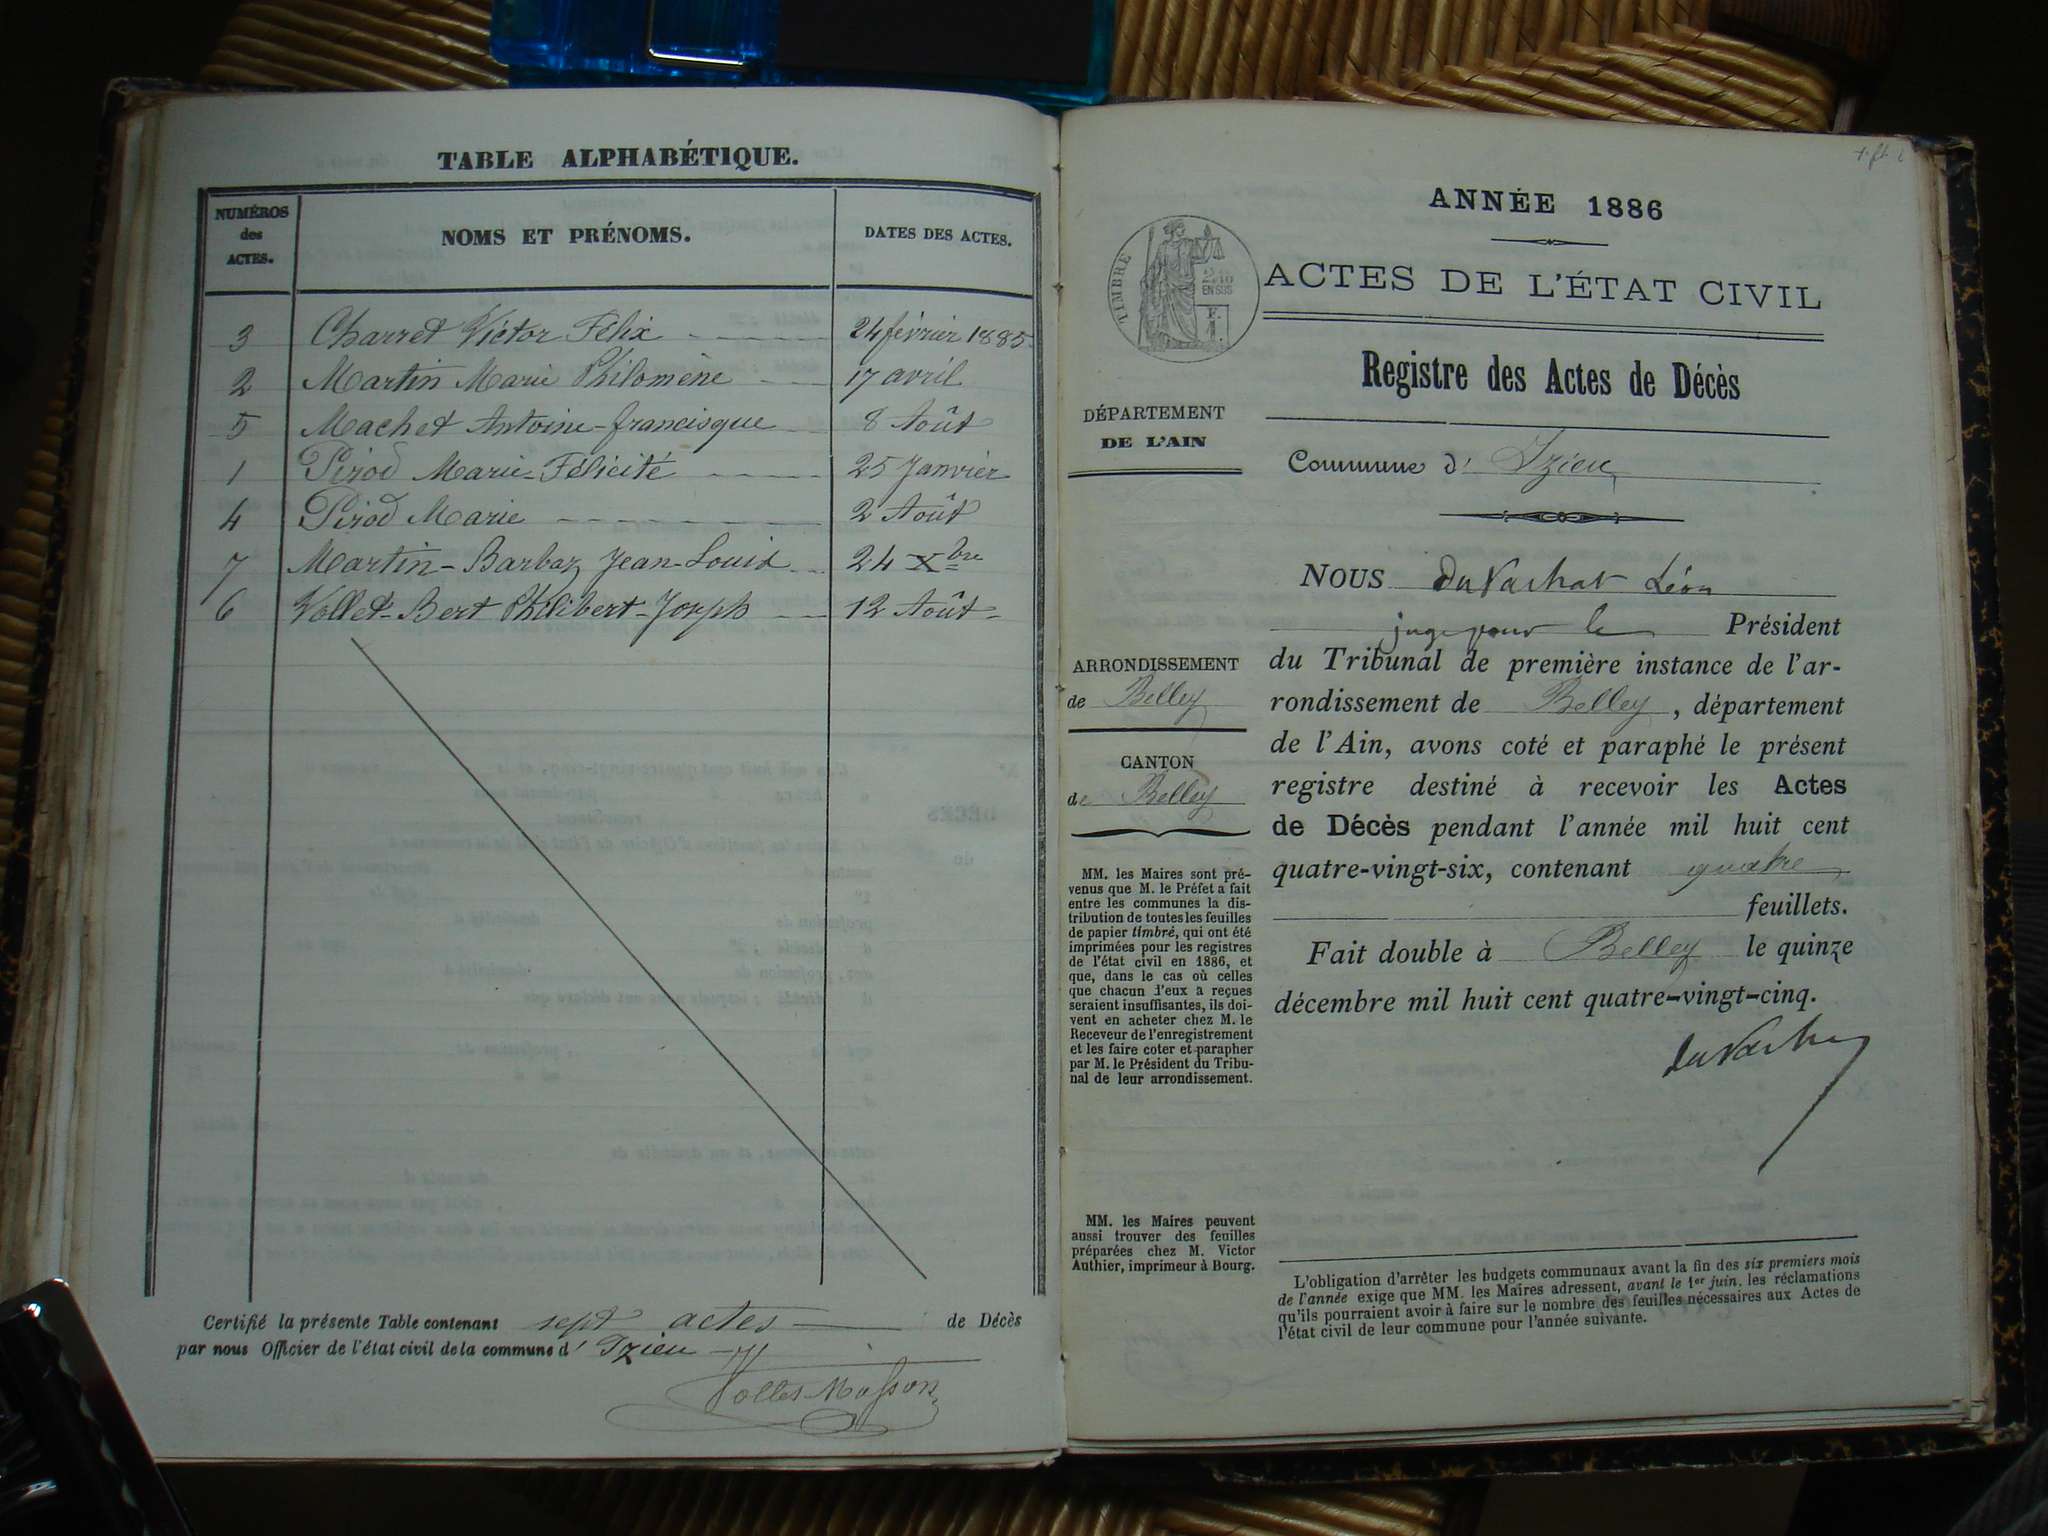 TABLE ALPHABÉTIQUE.
NUMÉROS des ACTES. NOMS ET PRÉNOMS. DATES DES ACTES.
3 Charret Victor Félix 24 février 1885
2 Martin Marie Philomène 17 avril
5 Machet Antoine-francisque 8 Août
1 Pirod Marie-Félicité 25 Janvier
4 Pirod Marie 2 Août
7 Martin-Barbaz Jean-Louis 24 Xbre
6 Vollet-Bert Philibert-Joseph 12 Août
Certifié la présente Table contenant sept actes de Décès
par nous Officier de l'état civil de la commune d' Izieu
ANNÉE 1886
ACTES DE L'ÉTAT CIVIL
TIMBRE
2/10
EN SUS
Registre des Actes de Décès
DÉPARTEMENT
DE L'AIN
Commune d' Izieu
NOUS du Vachat Léon
juge pour le Président
du Tribunal de première instance de l'ar-
rondissement de Belley, département
de l'Ain, avons coté et paraphé le présent
registre destiné à recevoir les Actes
de Décès pendant l'année mil huit cent
quatre-vingt-six, contenant quatre
feuillets.
Fait double à Belley le quinze
décembre mil huit cent quatre-vingt-cinq.
du Vachat
ARRONDISSEMENT
de Belley
CANTON
de Belley
MM. les Maires sont pré-
venus que M. le Préfet a fait
entre les communes la dis-
tribution de toutes les feuilles
de papier timbré, qui ont été
imprimées pour les registres
de l'état civil en 1886, et
que, dans le cas où celles
que chacun d'eux a reçues
seraient insuffisantes, ils doi-
vent en acheter chez M. le
Receveur de l'enregistrement
et les faire coter et parapher
par M. le Président du Tribu-
nal de leur arrondissement.
MM. les Maires peuvent
aussi trouver des feuilles
préparées chez M. Victor
Authier, imprimeur à Bourg.
L'obligation d'arrêter les budgets communaux avant la fin des six premiers mois
de l'année exige que MM. les Maires adressent, avant le 1er juin, les réclamations
qu'ils pourraient avoir à faire sur le nombre des feuilles nécessaires aux Actes de
l'état civil de leur commune pour l'année suivante.